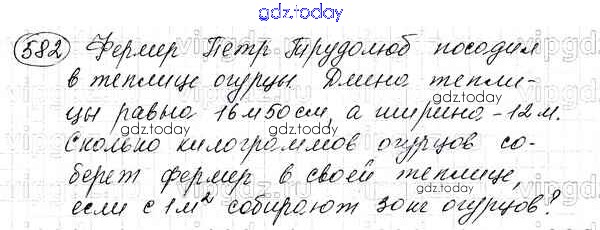 gdz.today
582 Фермер Петр Трудолюб посадил
в теплице огурцы. Длина тепли-
цы равна 16 м 50 см, а ширина - 12 м.
gdz.today gdz.today
Сколько килограммов огурцов со-
gdz.today
берет фермер в своей теплице,
gdz.today
если с 1 м² собирают 30 кг огурцов?